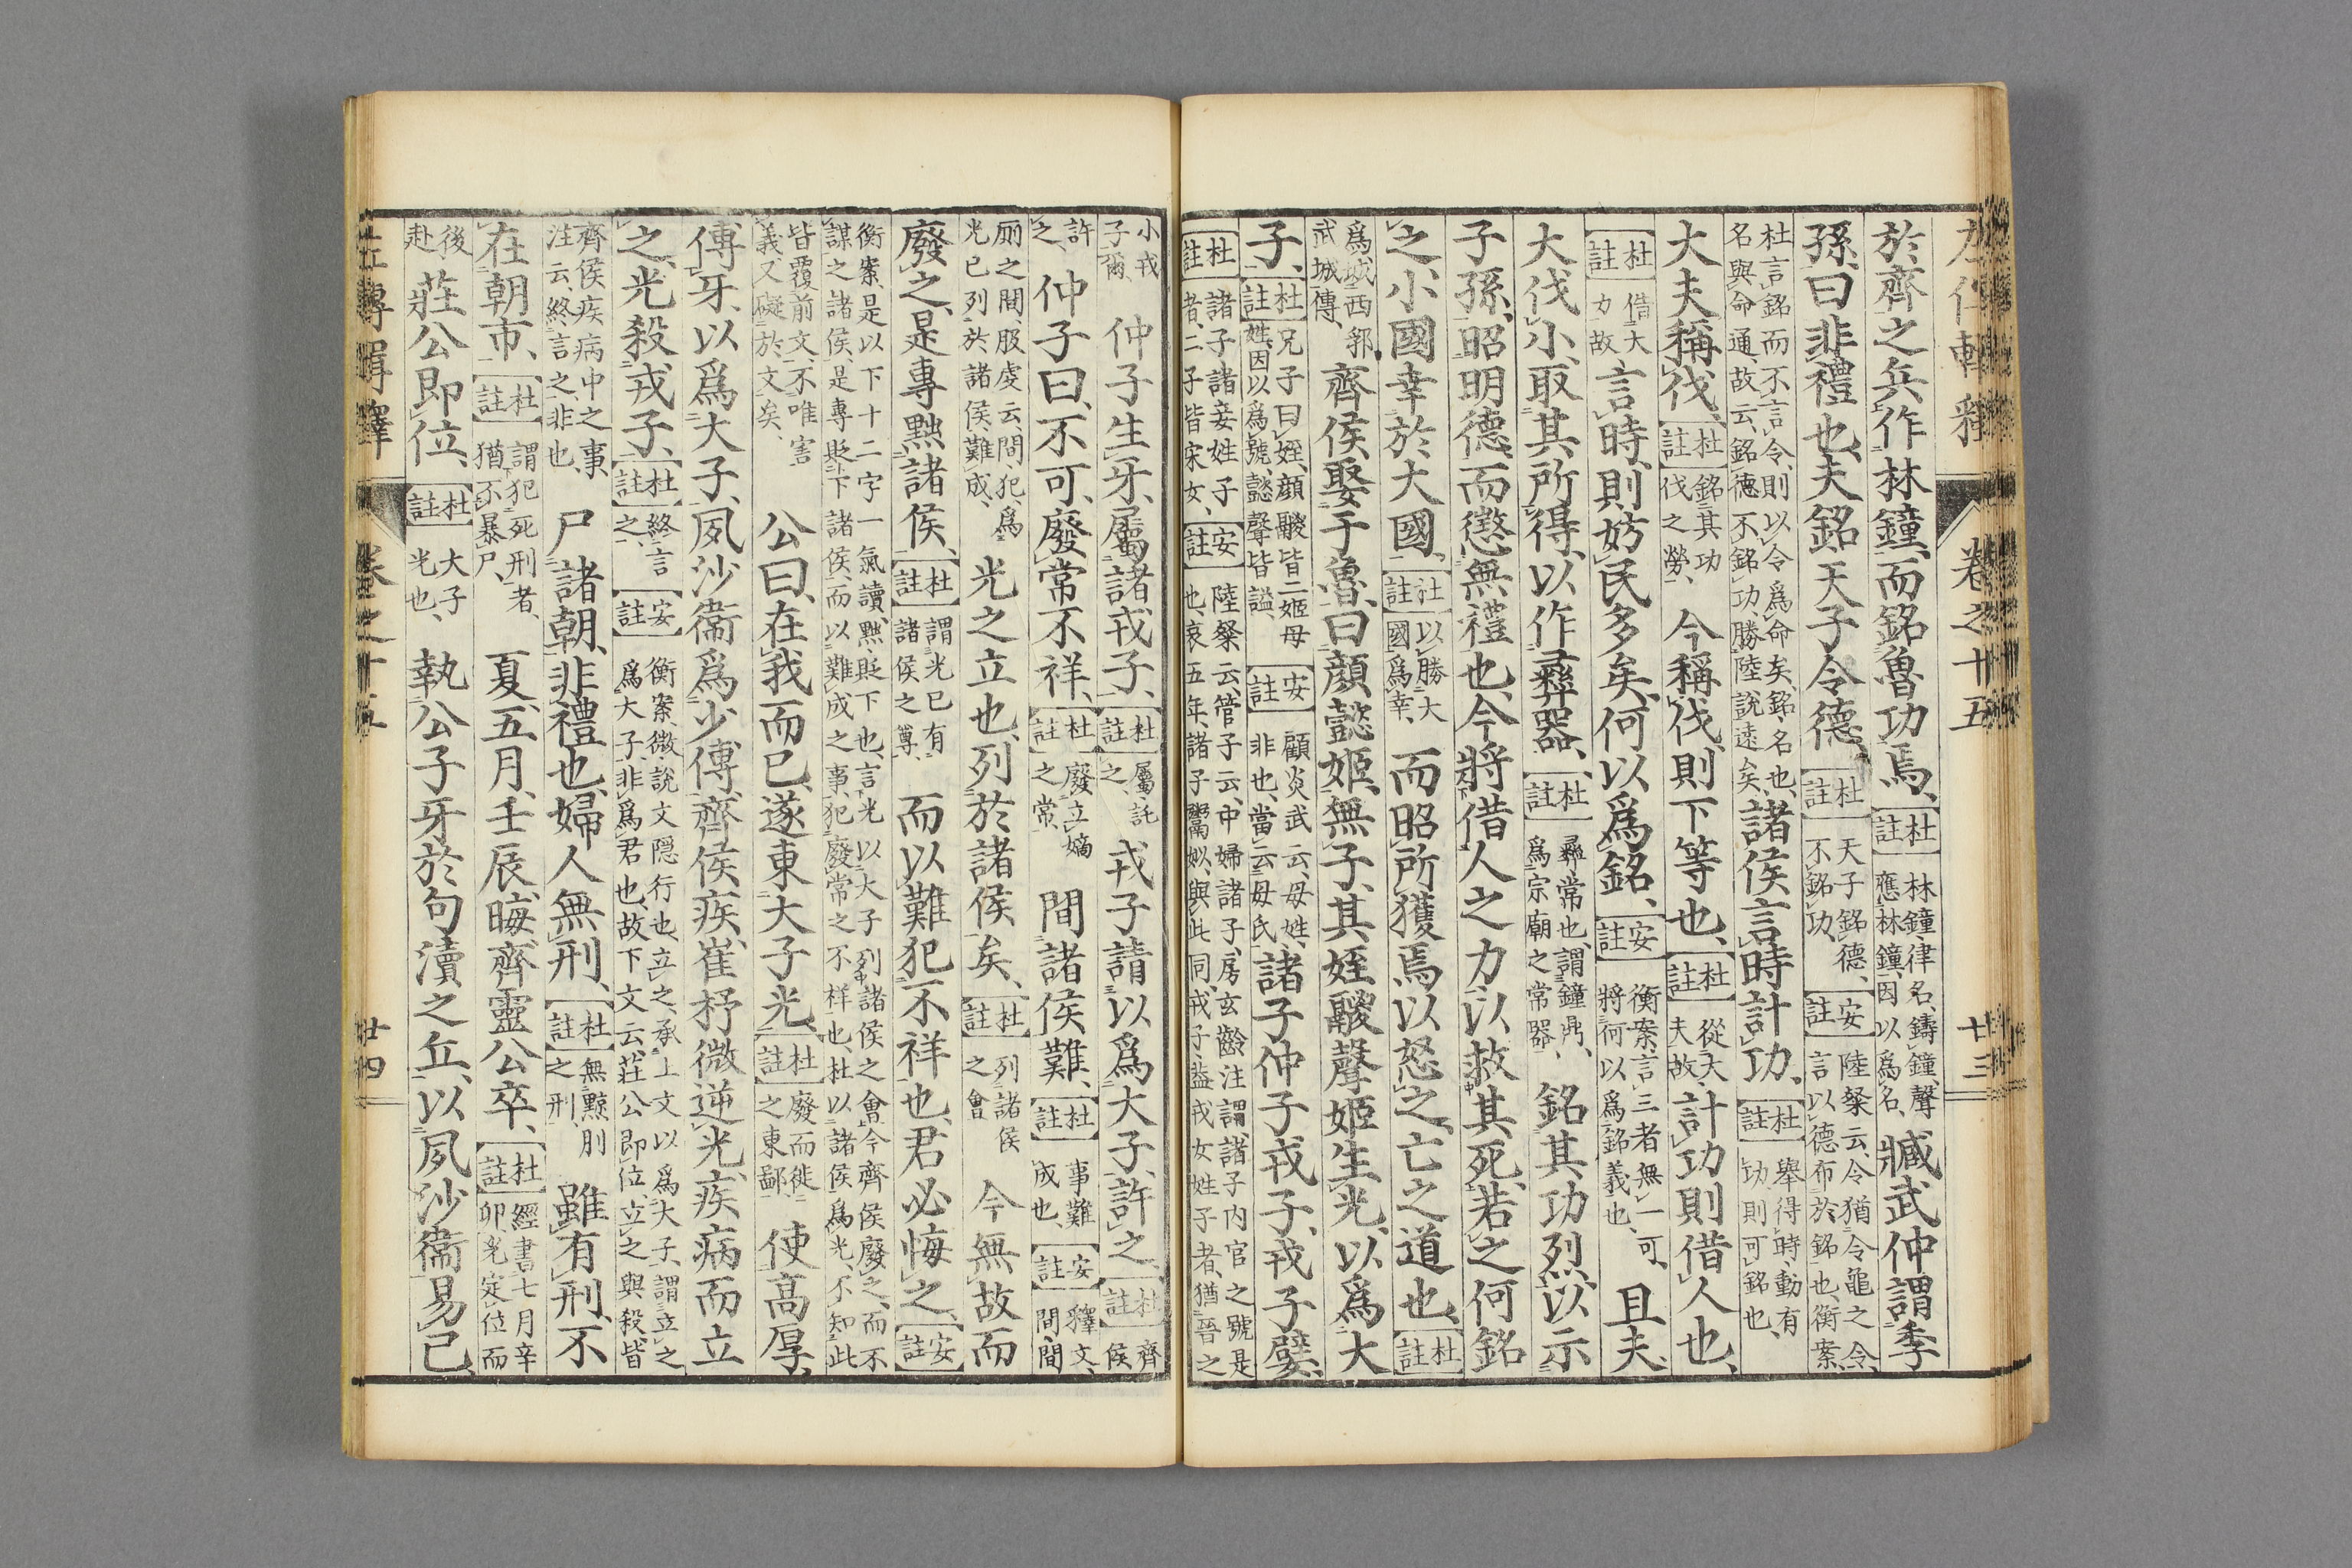 左傳輯釋 卷之十五 廿三
於齊之兵作林鐘而銘魯功焉、[杜註]林鐘、律名、鑄鐘、聲應林鐘、因以爲名、臧武仲謂季
孫曰、非禮也、夫銘、天子令德、[杜註]天子銘德、不銘功、[安註]陸粲云、令猶令龜之令、言以德布於銘也、衡案、
杜言銘而不言令、則以令爲命矣、銘、名也、名與命通、故云、銘德不銘功、勝陸說遠矣、諸侯言時計功、[杜註]舉得時、動有功、則可銘也、
大夫稱伐、[杜註]銘其功伐之勞、今稱伐、則下等也、[杜註]從大夫故、計功則借人也、
[杜註]借大力故、言時、則妨民多矣、何以爲銘、[安註]衡案、言三者無一可、將何以爲銘義也、且夫
大伐小、取其所得、以作彝器、[杜註]彝、常也、謂鐘鼎、爲宗廟之常器、銘其功烈、以示
子孫、昭明德而懲無禮也、今將借人之力、以救其死、若之何銘
之、小國幸於大國、[杜註]以勝大國爲幸、而昭所獲焉以怒之、亡之道也、[杜註]
爲城西郛武城傳、齊侯娶于魯、曰顏懿姬、無子、其姪鬷聲姬生光、以爲大
子、[杜註]兄子曰姪、顏鬷皆二姬母姓、因以爲號、懿聲皆謚、[安註]顧炎武云、母姓、非也、當云母氏、諸子仲子戎子、戎子嬖、
[杜註]諸子、諸妾姓子者、二子皆宋女、[安註]陸粲云、管子云、中婦諸子、房玄齡注、謂諸子内官之號是也、哀五年、諸子鬻姒、與此同、戎子、益戎女姓子者、猶晉之
小戎子爾、仲子生牙、屬諸戎子、[杜註]屬託之、戎子請以爲大子、許之、[杜註]齊侯
許之、仲子曰、不可、廢常不祥、[杜註]廢立嫡之常、間諸侯難、[杜註]事難成也、[安註]釋文、間、間
厠之間、服虔云、間、犯、爲光已列於諸侯、難成、光之立也、列於諸侯矣、[杜註]列諸侯之會、今無故而
廢之、是專黜諸侯、[杜註]謂光已有諸侯之尊、而以難犯不祥也、君必悔之、[安註]
衡案、是以下十二字一氣讀、黜、貶下也、言光以大子列諸侯之會、今齊侯廢之、而不謀之諸侯、是專貶下諸侯、而以難成之事、犯廢常之不祥也、杜以諸侯爲光、不知此
皆覆前文、不唯害義、又礙於文矣、公曰、在我而已、遂東大子光、[杜註]廢而徙之東鄙、使高厚
傅牙、以爲大子、夙沙衞爲少傅、齊侯疾、崔杼微逆光、疾病而立
之、光殺戎子、[杜註]終言之、[安註]衡案、微、說文隱行也、立之、承上文以爲大子、謂立之爲大子、非爲君也、故下文云、莊公即位、立之與殺、皆
齊侯疾病中之事、注云、終言之、非也、尸諸朝、非禮也、婦人無刑、[杜註]無黥刖之刑、雖有刑、不
在朝市、[杜註]謂犯死刑者、猶不暴尸、夏、五月、壬辰、晦、齊靈公卒、[杜註]經書七月辛卯、光定位而
後赴、莊公即位、[杜註]大子光也、執公子牙於句瀆之丘、以夙沙衞易己、
左傳輯釋 卷之十五 廿四